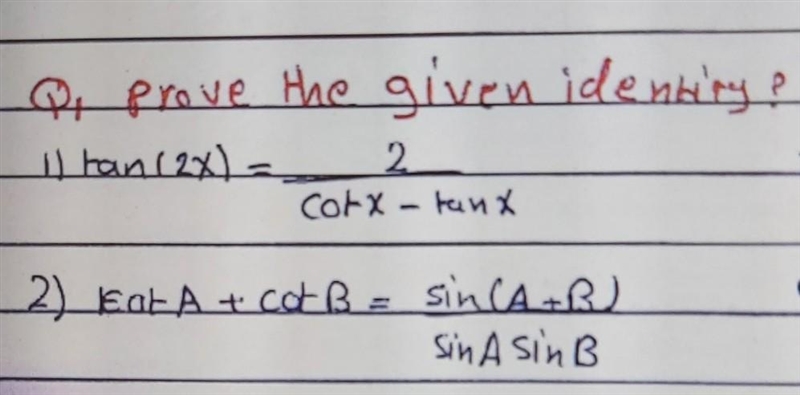 Q1 prove the given identity?
1) tan(2x) = 2
cotx - tanx
2) cotA + cotB = sin(A+B)
sinA sinB